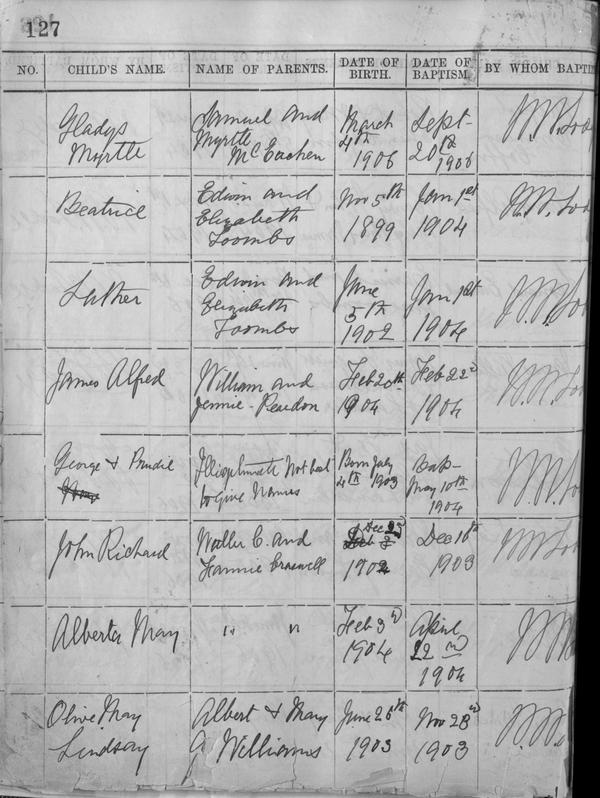 127
NO. CHILD'S NAME. NAME OF PARENTS. DATE OF BIRTH. DATE OF BAPTISM. BY WHOM BAPTI
Gladys
Myrtle
Samuel and
Myrtle
McEachen
March
4th
1906
Sept
20th
1906
Beatrice
Edwin and
Elizabeth
Toombs
Nov 5th
1899
Jan 1st
1904
Luther
Edwin and
Elizabeth
Toombs
June
5th
1902
Jan 1st
1904
James Alfred
William and
Jennie
Feb 20th
1904
Feb 22d
1904
George & Prudie
Not best
to Give Names
Born July
4th 1903
Bap-
May 10th
1904
John Richard
Walter C. and
Fannie Craswell
Dec 23d
1902
Dec 10th
1903
Alberta May
" "
Feb 3d
1904
April
22nd
1904
Olive May
Lindsay
Albert & Mary
A Williams
June 26th
1903
Nov 28d
1903